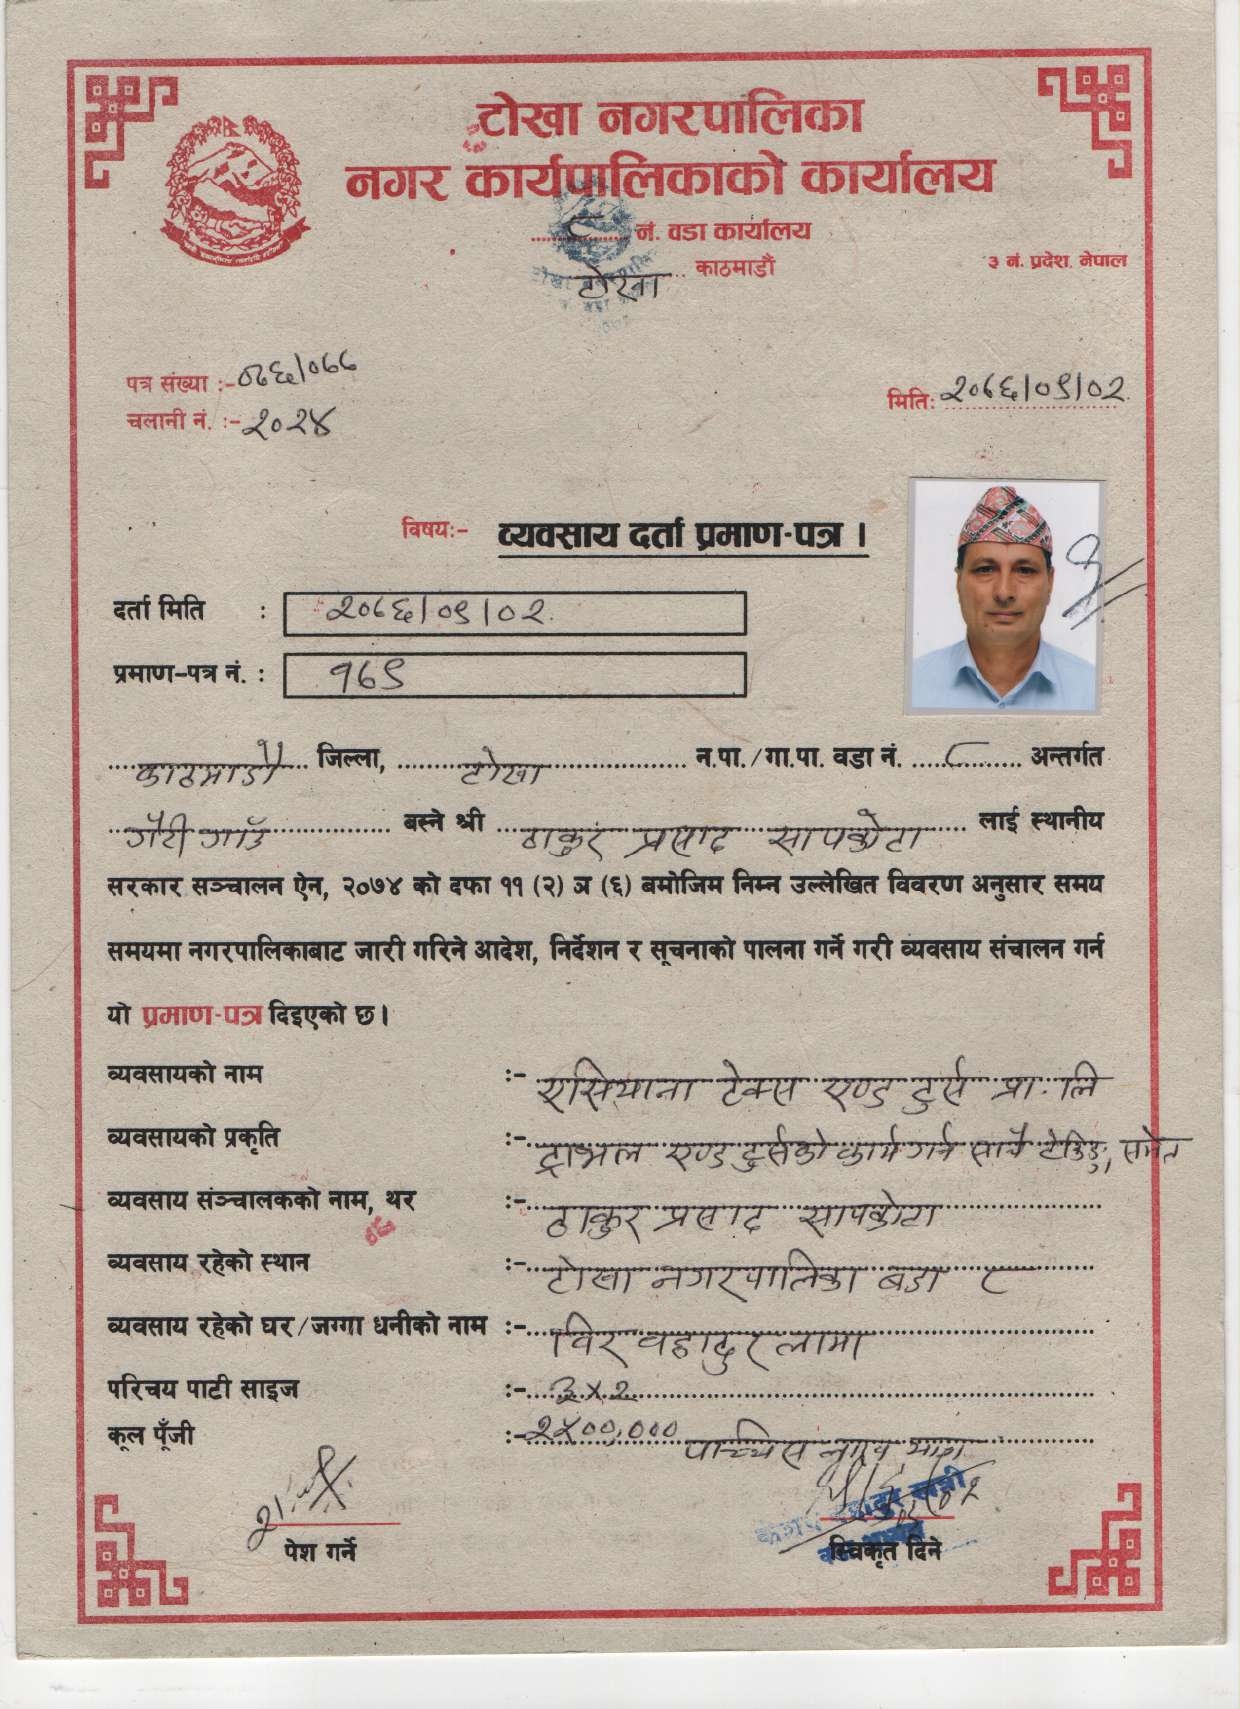 टोखा नगरपालिका
नगर कार्यपालिकाको कार्यालय
८ नं. वडा कार्यालय
टोखा काठमाडौं
३ नं. प्रदेश, नेपाल
पत्र संख्या :- ०७६/०७७
मिति: २०७६/०९/०२
चलानी नं. :- २०२४
विषय:- व्यवसाय दर्ता प्रमाण-पत्र ।
दर्ता मिति : २०७६/०९/०२
प्रमाण-पत्र नं. : १७९
काठमाडौं जिल्ला, टोखा न.पा./गा.पा. वडा नं. ८ अन्तर्गत
गैरी गाउँ बस्ने श्री ठाकुर प्रसाद सापकोटा लाई स्थानीय
सरकार सञ्चालन ऐन, २०७४ को दफा ११ (२) ञ (६) बमोजिम निम्न उल्लेखित विवरण अनुसार समय
समयमा नगरपालिकाबाट जारी गरिने आदेश, निर्देशन र सूचनाको पालना गर्ने गरी व्यवसाय संचालन गर्न
यो प्रमाण-पत्र दिइएको छ।
व्यवसायको नाम :- एसियाना टेक्स एण्ड टुर्स प्रा.लि
व्यवसायको प्रकृति :- ट्राभल एण्ड टुर्सको कार्य गर्ने साथै ट्रेडिङ्ग समेत
व्यवसाय संञ्चालकको नाम, थर :- ठाकुर प्रसाद सापकोटा
व्यवसाय रहेको स्थान :- टोखा नगरपालिका वडा ८
व्यवसाय रहेको घर/जग्गा धनीको नाम :- विर वहादुर लामा
परिचय पाटी साइज :- ३×२
कूल पूँजी :- २५००,००० पच्चिस लाख मात्र
पेश गर्ने
स्विकृत दिने